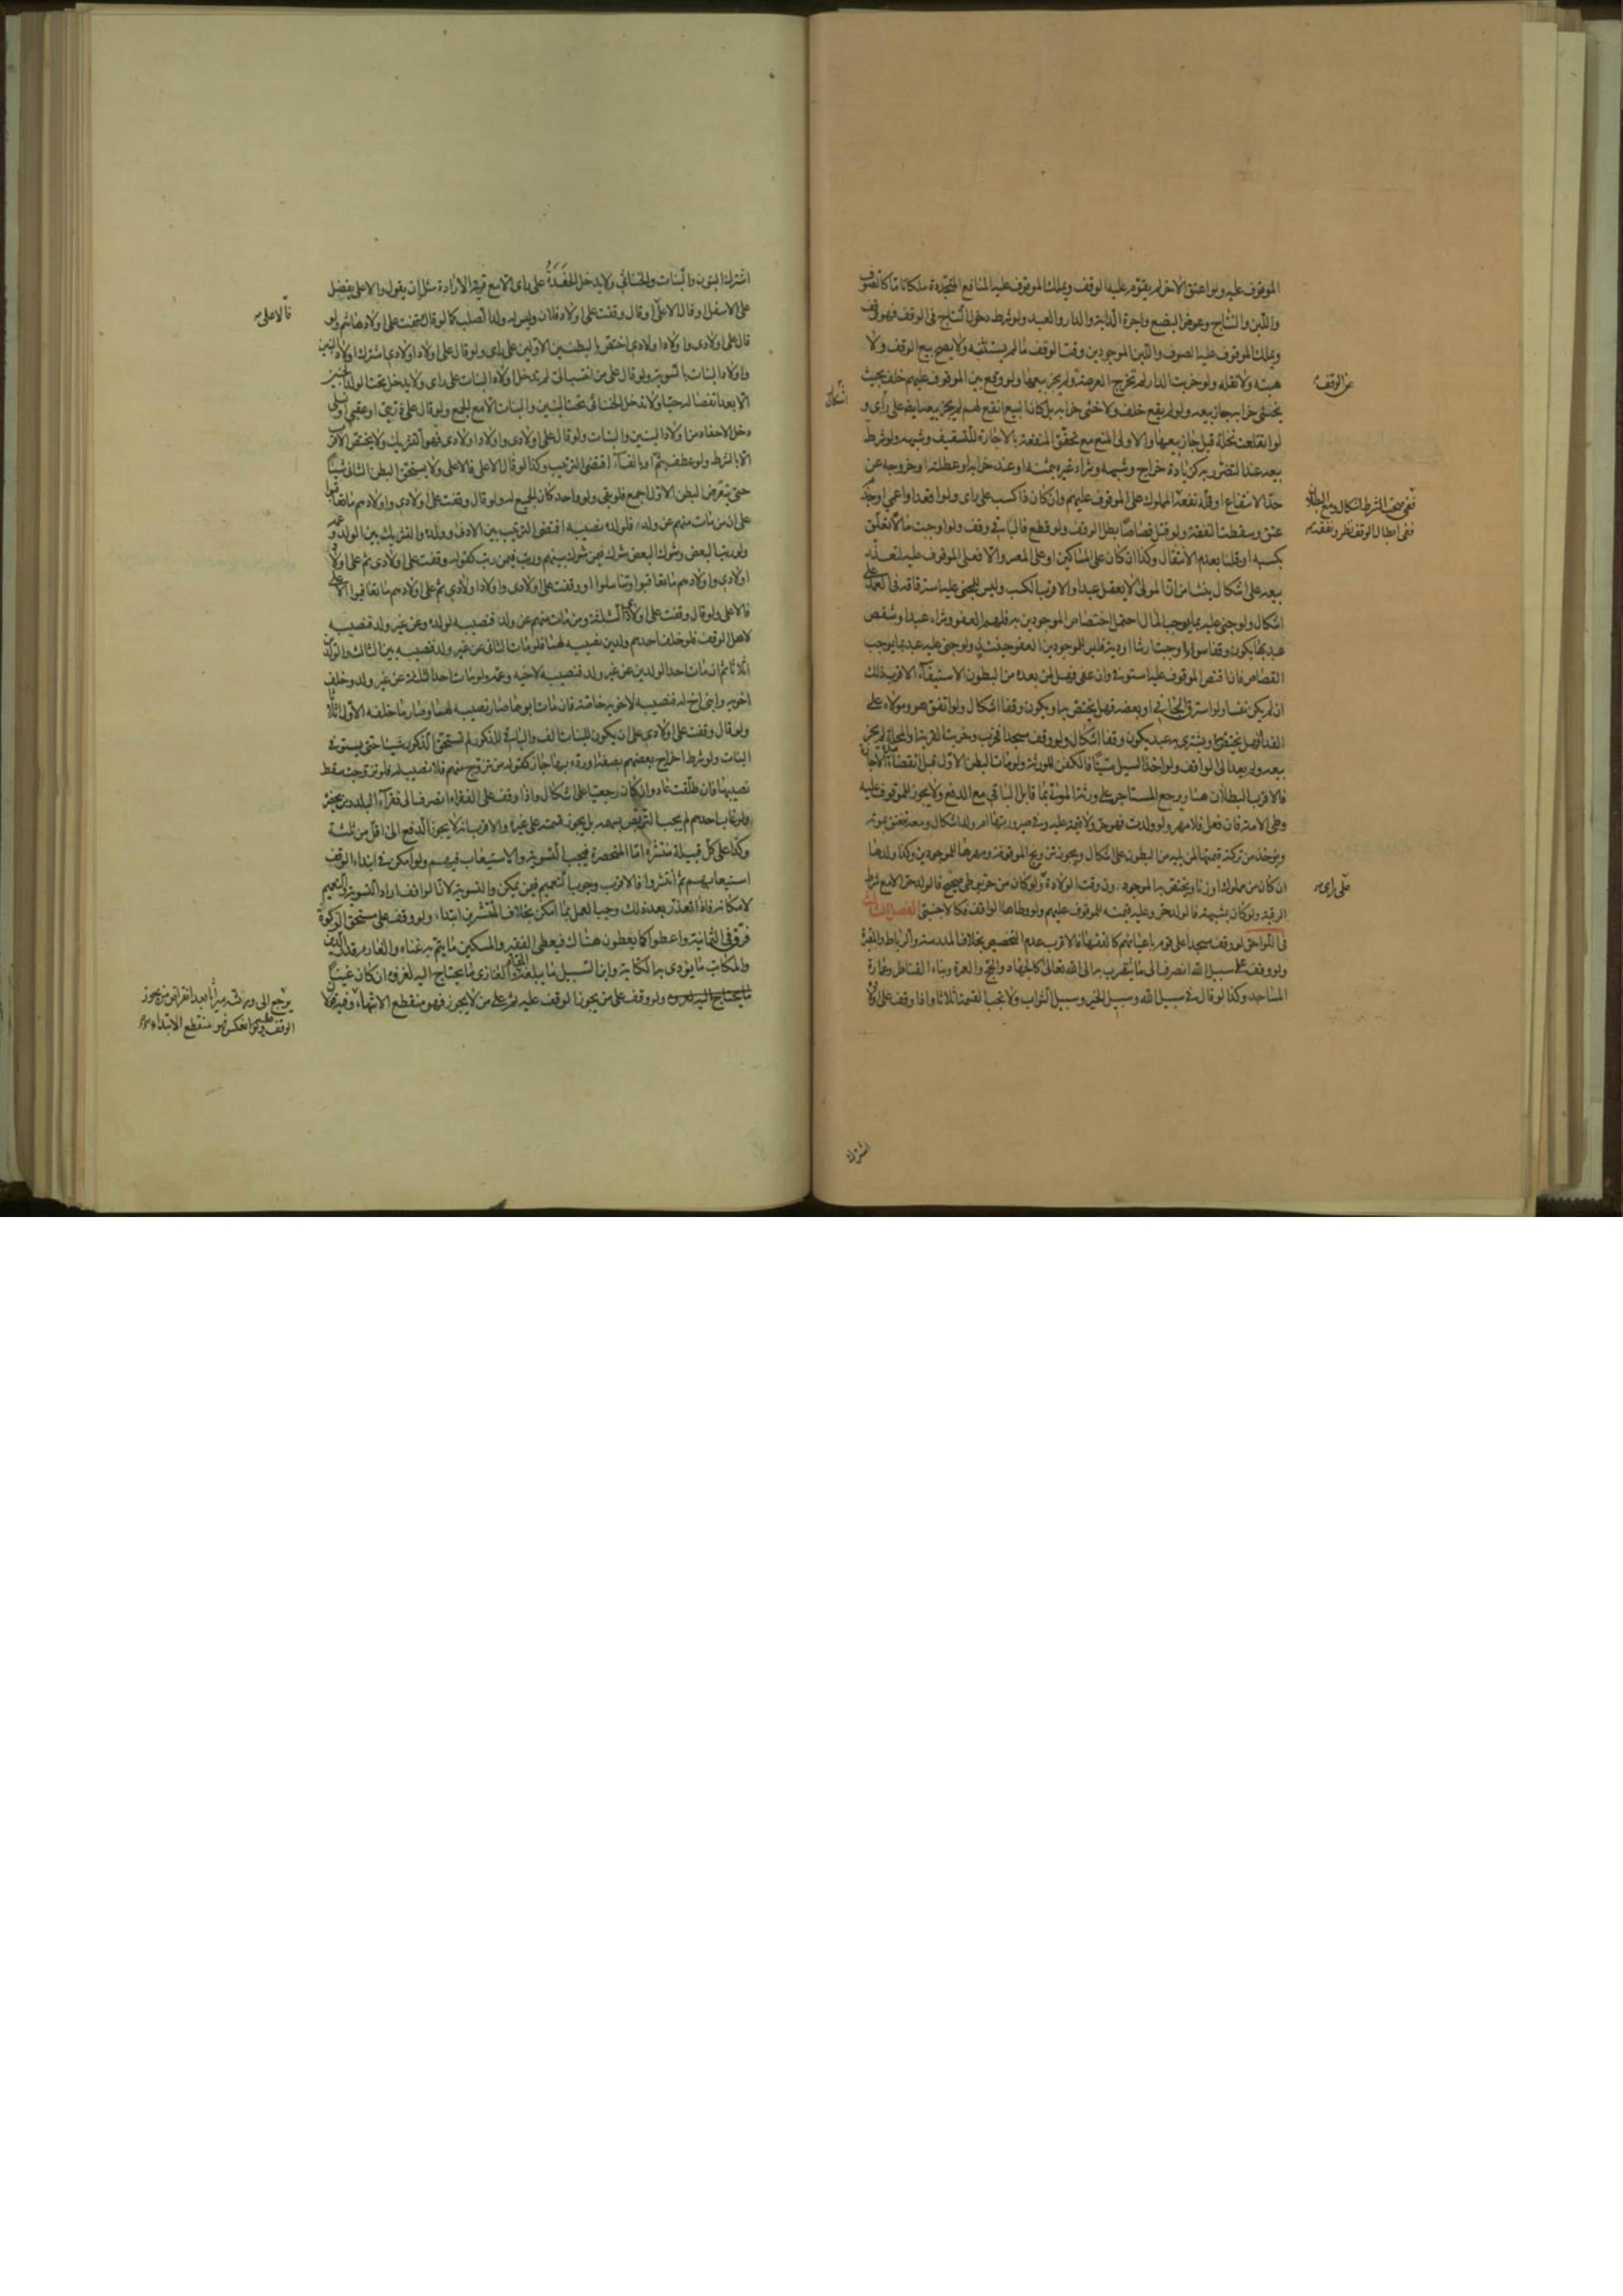 الموقوف عليه ولو اعتق الاخر لم يقوم عليه الوقف ويملك الموقوف عليه المنافع المتجددة ملكا تاما كالصوف
واللبن والنتاج وعوض البضع واجرة الدابة والدار والعبد ولو شرط دخول النتاج في الوقف فهو وقف
ويملك الموقوف عليه الصوف واللبن الموجودين وقت الوقف ما لم يستثنه ولا يصح بيع الوقف ولا
هبته ولا نقله ولو خربت الدار لم تخرج العرصة ولم يجز بيعها ولو وقع بين الموقوف عليهم خلف بحيث
يخشى خرابه جاز بيعه ولو لم يقع خلف ولا خشى خرابه بل كان البيع انفع لهم لم يجز بيعه ايضا على رأى و
لو انقلعت نخلة قيل جاز بيعها والاولى المنع مع تحقق المنفعة بالاجارة للتسقيف وشبهه ولو شرط
بيعه عند التضرر به كزيادة خراج وشبهه وشراء غيره بثمنه او عند خرابه او عطلته او خروجه عن
حد الانتفاع او قلة نفعه
نفقة المملوك على الموقوف عليهم وان كان ذا كسب على راى ولو اقعد او اعمى او جذم
عتق وسقطت النفقة ولو قتل قصاصا بطل الوقف ولو قطع فالباقي وقف ولو اوجبت مالا تعلق
بكسبه او قلنا بعدم الانتقال وكذا ان كان على المساكين او على المعسر والا فعلى الموقوف عليه لتعذر
بيعه على اشكال ينشأ من ان المولى لا يعقل عبدا والاقرب الكسب وليس للمجنى عليه استرقاقه في العمد على
اشكال ولو جنى عليه بما يوجب المال احتمل اختصاص الموجودين به فلهم العفو وشراء عبد او شقص
عبد بها يكون وقفا سواء اوجبت ارشا او دية فليس للموجودين العفو حينئذ ولو جنى عليه عبد بما يوجب
القصاص فان اقتص الموقوف عليه استوفى وان عفى فهل لمن بعده من البطون الاستيفاء الاقرب ذلك
ان لم يكن نفسا ولو استرق الجاني او بعضه فهل يختص به او يكون وقفا اشكال ولو اتفق هو ومولاه على
الفداء فهل يختص به او يشترى به عبد يكون وقفا اشكال ولو وقف مسجدا فخرب وخربت القرية او المحلة لم يجز
بيعه ولم يعد الى الواقف ولو اخذ السيل ميتا فالكفن للورثة ولو مات البطن الاول قبل انقضاء مدة الاجارة
فالاقرب البطلان هنا ويرجع المستاجر على ورثة الموتى بما قابل الباقي مع الدفع ولا يجوز للموقوف عليه
وطى الامة فان فعل فلا مهر ولو ولدت فهو حر ولا قيمة عليه وفي صيرورتها ام ولد اشكال ومعه تنعتق بموته
ويؤخذ من تركته قيمتها لمن يليه من البطون على اشكال ويجوز تزويج الموقوفة ومهرها للموجودين وكذا ولدها
ان كان من مملوك او زنا ويختص به الموجود وقت الولادة ولو كان من حر بوطى صحيح فالولد حر الا مع شرط
الرقية ولو كان بشبهة فالولد حر وعليه قيمته للموقوف عليهم ولو وطاها الواقف فكالاجنبى الفصل الثالث
في اللواحق لو وقف مسجدا على قوم باعيانهم كالفقهاء فالاقرب عدم التخصيص بخلاف المدرسة والرباط والمقبرة
ولو وقف على سبيل الله انصرف الى ما يتقرب به الى الله تعالى كالجهاد والحج والعمرة وبناء القناطر وعمارة
المساجد وكذا لو قال في سبيل الله وسبيل الخير وسبيل الثواب ولا يجب القسمة اثلاثا واذا وقف على اولاده
عن الوقف
اشكال
ففى صحة الشرط اشكال ومع البطلان
ففى ابطال الوقف نظر ونفقة
على راى
اشترك
اشترك البنون والبنات والخناثى ولا يدخل الحفدة على راى الا مع قرينة الارادة مثل ان يقول والاعلى يفضل
على الاسفل او قال الاعلى او قال وقفت على اولاد فلان وليس له ولد الصلب كما لو قال وقفت على اولاد هاشم ولو
قال على اولادى واولاد اولادى اختص بالبطنين الاولين على راى ولو قال على اولاد اولادى اشترك اولاد البنين
واولاد البنات بالسوية ولو قال على من انتسب الى لم تدخل اولاد البنات على راى ولا يدخل تحت الولد الجنين
الا بعد انفصاله حيا ولا تدخل الخناثى تحت البنين والبنات الا مع الجمع ولو قال على ذريتى او عقبى او نسلى
دخل الاحفاد من اولاد البنين والبنات ولو قال على اولادى واولاد اولادى فهو للتشريك ولا يختص الاقرب
الا بالشرط ولو عطف بثم او بالفاء اقتضى الترتيب وكذا لو قال الاعلى فالاعلى ولا يستحق البطن الثانى شيئا
حتى ينقرض البطن الاول اجمع فلو بقى ولو واحد كان الجميع له ولو قال وقفت على اولادى واولادهم ما تعاقبوا
على ان من مات منهم عن ولد فلولده نصيبه اقتضى الترتيب بين الادنى وولده والتشريك بين الولد وعمه
ولو رتب البعض وشرك البعض شرك فيمن شرك بينهم ورتب فيمن رتب كقوله وقفت على اولادى ثم على اولاد
اولادى واولادهم ما تعاقبوا وتناسلوا او وقفت على اولادى واولاد اولادى ثم على اولادهم ما تعاقبوا الاعلى
فالاعلى ولو قال وقفت على اولادى الثلثة ومن مات منهم عن ولد فنصيبه لولده وعن غير ولد فنصيبه
لاهل الوقف فلو خلف احدهم ولدين نصيبه لهما فلو مات الثانى عن غير ولد فنصيبه بين الثالث والولدين
اثلاثا ثم ان مات احد الولدين عن غير ولد فنصيبه لاخيه وعمه ولو مات احد الثلثة عن غير ولد وخلف
اخويه وابنى اخ له فنصيبه لاخويه خاصة فان مات ابوهما صار نصيبه لهما وصار ما خلفه الاول اثلاثا
ولو قال وقفت على اولادى على ان يكون للبنات الف والباقى للذكور لم تستحق الذكور شيئا حتى يستوفى
البنات ولو شرط اخراج بعضهم بصفة او رده بها جاز كقوله من تزوج منهم فلا نصيب له فلو تزوجت سقط
نصيبها فان طلقت عاد وان كان رجعيا على اشكال واذا وقف على الفقراء انصرف الى فقراء البلد ومن يحضره
ولو غاب احدهم لم يجب التربص بسهمه بل يجوز قسمته على غيره والاقرب انه لا يجوز الدفع الى اقل من ثلثة
وكذا على كل قبيلة منتشرة اما المنحصرة فيجب التسوية والاستيعاب فيهم ولو امكن في ابتداء الوقف
استيعابهم ثم انتشروا فالاقرب وجوب التعميم فيمن يمكن والتسوية لان الواقف اراد التسوية والتعميم
لامكانه فاذا تعذر بعد ذلك وجب العمل بما امكن بخلاف المنتشرين ابتداء ولو وقف على مستحق الزكوة
فرق في الثمانية واعطوا كما يعطون هناك فيعطى الفقير والمسكين ما يتم به غناه والغارم بقدر الدين
والمكاتب ما يؤدى به الكتابة وابن السبيل ما يبلغه والغازى ما يحتاج اليه لغزوه ان كان غنيا
ولو وقف على من يجوز الوقف عليه ثم على من لا يجوز فهو منقطع الانتهاء
فالاعلى
يرجع الى ورثته ميراثا بعد انقراض من يجوز
الوقف عليه ولو انعكس فهو منقطع الابتداء